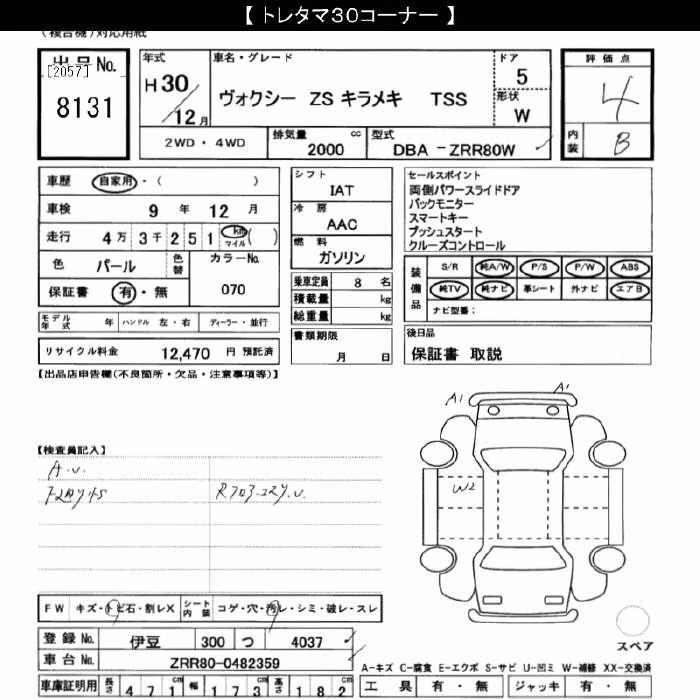 【 トレタマ30コーナー 】
(複合機)対応用紙
出品No.
[2057]
8131
年式
H 30
12 月
車名・グレード
ヴォクシー ZS キラメキ TSS
ドア
5
形状
W
評価点
4
内装
B
2WD・4WD
排気量
cc
2000
型式
DBA -ZRR80W
車歴
自家用・( )
車検
9 年 12 月
走行
4万 3千 2 5 1 km マイル ( )
色
パール
色替
カラーNo.
070
保証書
有・無
シフト
IAT
冷房
AAC
燃料
ガソリン
乗車定員 8 名
積載量 kg
総重量 kg
セールスポイント
両側パワースライドドア
バックモニター
スマートキー
プッシュスタート
クルーズコントロール
装備品
S/R 純A/W P/S P/W ABS
純TV 純ナビ 革シート 外ナビ エアB
ナビ型番:
モデル年式 年 ハンドル 左・右 ディーラー・並行
リサイクル料金 12,470 円 預託済
書類期限
月 日
後日品
保証書 取説
【出品店申告欄(不良箇所・欠品・注意事項等)】
【検査員記入】
A.U.
A1
A1
W2
FW キズ・トビ石・割レX
シート内装 コゲ・穴・汚レ・シミ・破レ・スレ
登録No. 伊豆 300 つ 4037
車台No. ZRR80-0482359
車庫証明用 長さ 4 7 1 cm 幅 1 7 3 cm 高さ 1 8 2 cm
スペア
A-キズ C-腐食 E-エクボ S-サビ U-凹ミ W-補修 XX-交換済
工具 有・無 ジャッキ 有・無